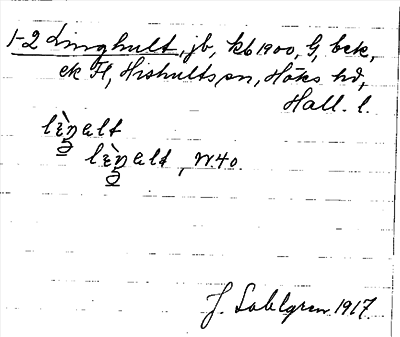 1-2 Linghult, jb, kb 1900, G, bek,
ek Fl, Hishults sn, Höks hd,
Hall. l.
lèŋalt
lèŋalt, N. 40.
J. Sahlgren 1917.